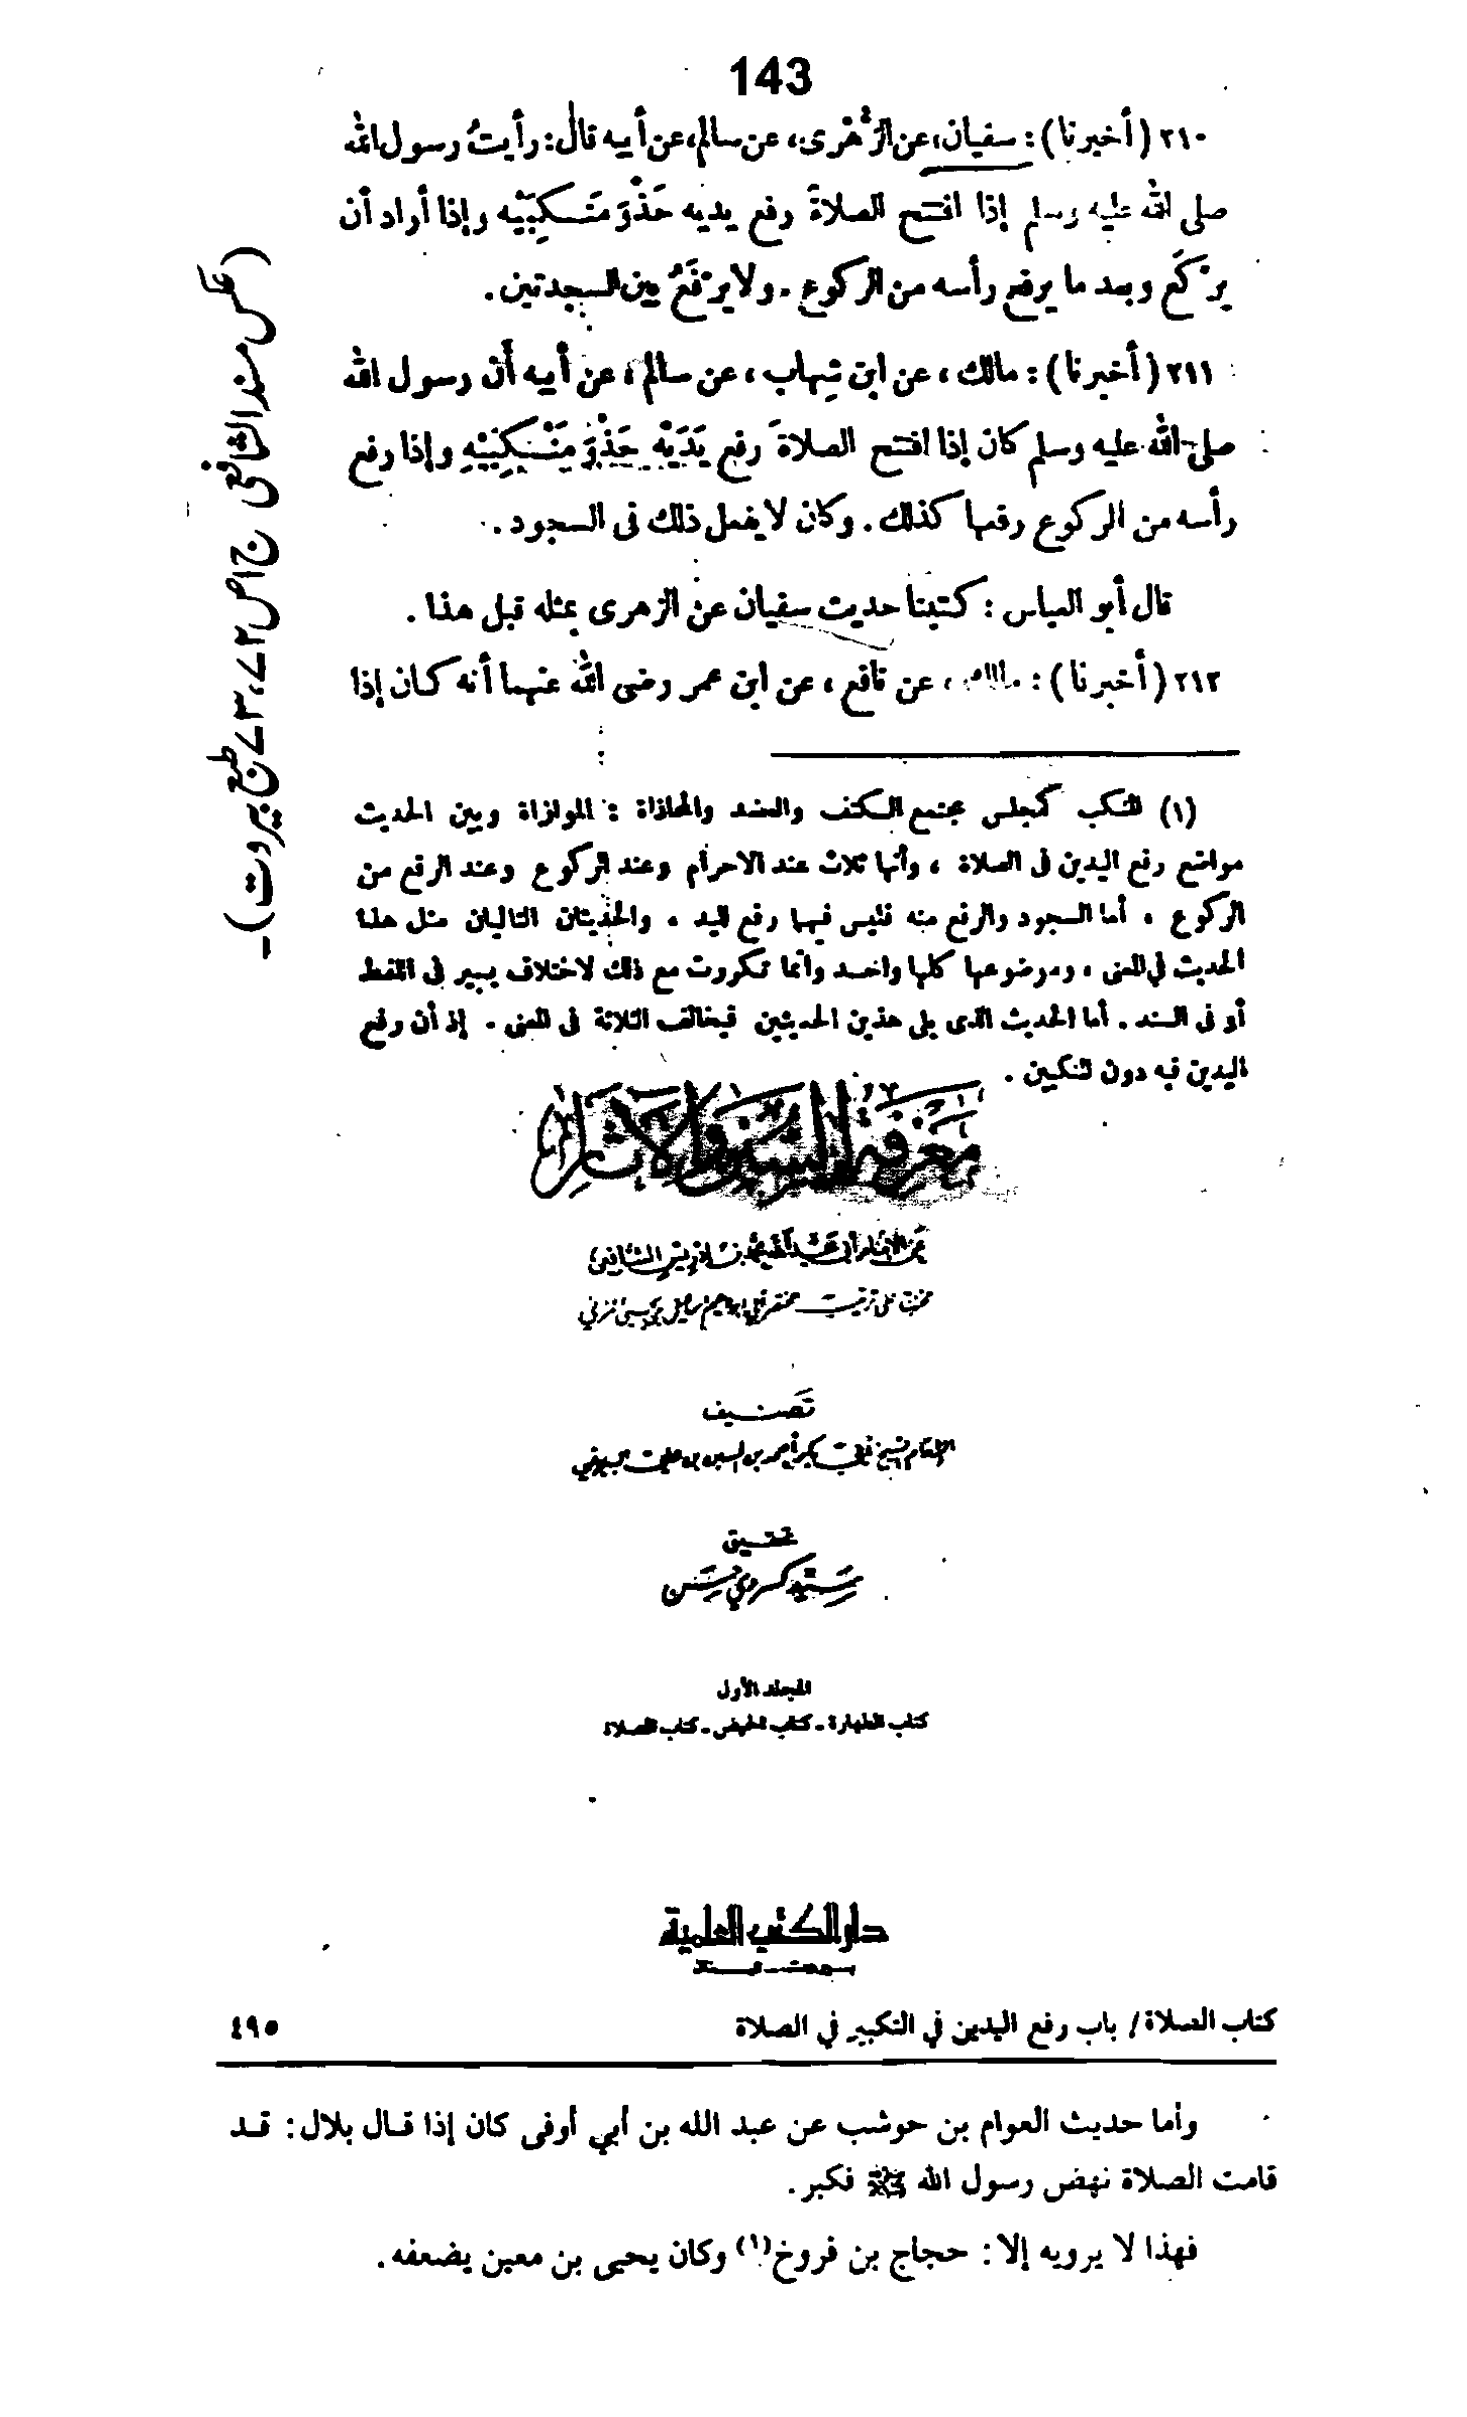 143
٢١٠ (أخبرنا): سفيان، عن الزُّهْرى، عن سالم، عن أبيه قال: رأيتُ رسول الله
صلى الله عليه وسلم إذا افتتح الصلاةَ رفع يديه حَذْوَ مَنْكِبَيْه وإذا أراد أن
يركَع وبعد ما يرفع رأسه من الركوع. ولا يرفَعُ بين السجدتين.
٢١١ (أخبرنا): مالك، عن ابن شِهاب، عن سالم، عن أبيه أن رسول الله
صلى الله عليه وسلم كان إذا افتتح الصلاةَ رفع يَدَيْه حَذْوَ مَنْكِبَيْهِ وإذا رفع
رأسه من الركوع رفعهما كذلك. وكان لا يفعل ذلك فى السجود.
قال أبو العباس: كتبنا حديث سفيان عن الزهرى بمثله قبل هذا.
٢١٢ (أخبرنا): مالك، عن نافع، عن ابن عمر رضى الله عنهما أنه كان إذا
(١) المنكب كمجلس مجتمع الكتف والعضد والمحاذاة: الموازاة وبين الحديث
مواضع رفع اليدين فى الصلاة، وأنها ثلاث عند الاحرام وعند الركوع وعند الرفع من
الركوع، أما السجود والرفع منه فليس فيهما رفع لليد، والحديثان التاليان مثل هذا
الحديث في المعنى، وموضوعها كلها واحد وانما تكررت مع ذلك لاختلاف يسير فى اللفظ
أو فى السند. أما الحديث الذى يلى هذين الحديثين فيخالف الثلاثة فى المعنى. إذ أن رفع
اليدين فيه دون المنكبين.
(عکس مسند الشافعی ج ا ص ۷۲، ۷۳ طبع بیروت)۔
معرفة السنن والآثار
عن الإمام أبي عبد الله محمد بن إدريس الشافعي
مخرج على ترتيب مختصر أبي إبراهيم إسماعيل بن يحيى المزني
تصنيف
الإمام الشيخ أبي بكر أحمد بن الحسين بن علي البيهقي
تحقيق
سيد كسروي حسن
المجلد الأول
كتاب الطهارة - كتاب الحيض - كتاب الصلاة
دار الكتب العلمية
كتاب الصلاة / باب رفع اليدين في التكبير في الصلاة ٤٩٥
وأما حديث العوام بن حوشب عن عبد الله بن أبي أوفى كان إذا قال بلال: قد
قامت الصلاة نهض رسول الله ﷺ فكبر.
فهذا لا يرويه إلا: حجاج بن فروخ(١) وكان يحيى بن معين يضعفه.